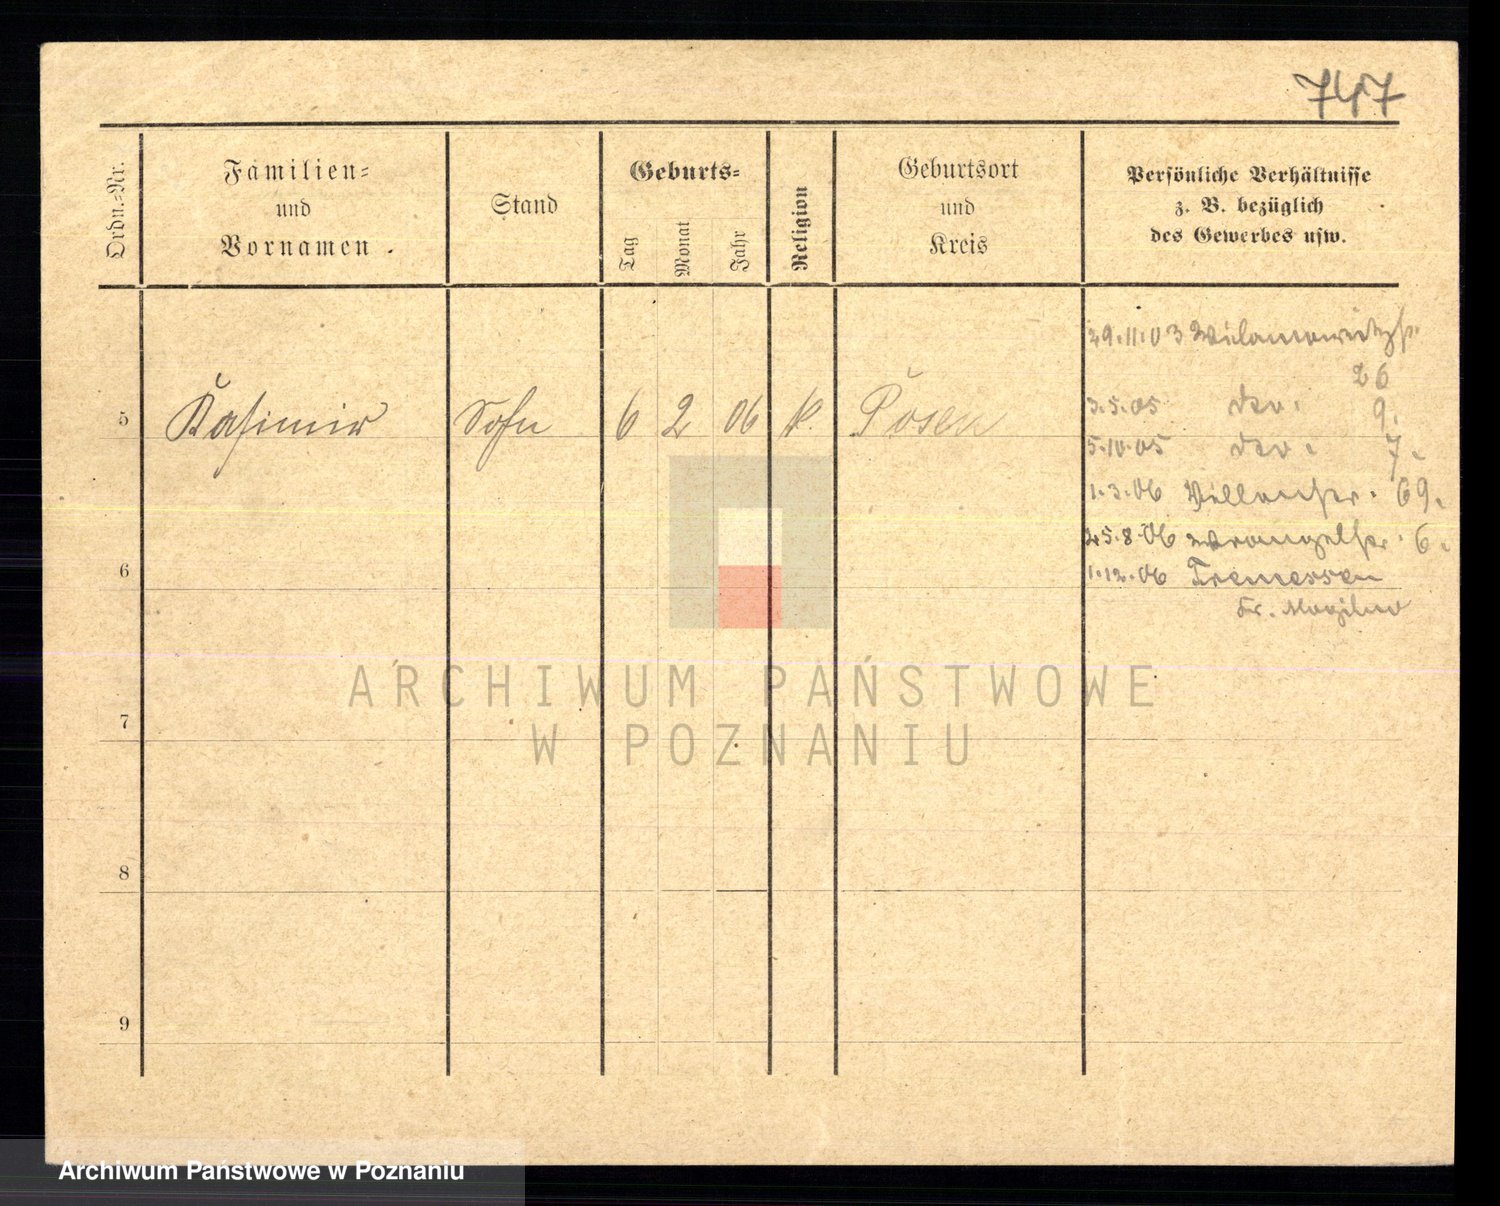 747
Ordn.-Nr.
Familien-
und
Vornamen.
Stand
Geburts-
Tag
Monat
Jahr
Religion
Geburtsort
und
Kreis
Persönliche Verhältnisse
z. B. bezüglich
des Gewerbes usw.
29.11.03
26
5 Kasimir Sohn 6 2 06 k. Posen
3.5.05 9.
5.10.05 7.
1.3.06 69.
25.8.06 Wrangelstr. 6.
6
1.12.06 Tremessen
Kr. Mogilno
ARCHIWUM PAŃSTWOWE
W POZNANIU
7
8
9
Archiwum Państwowe w Poznaniu